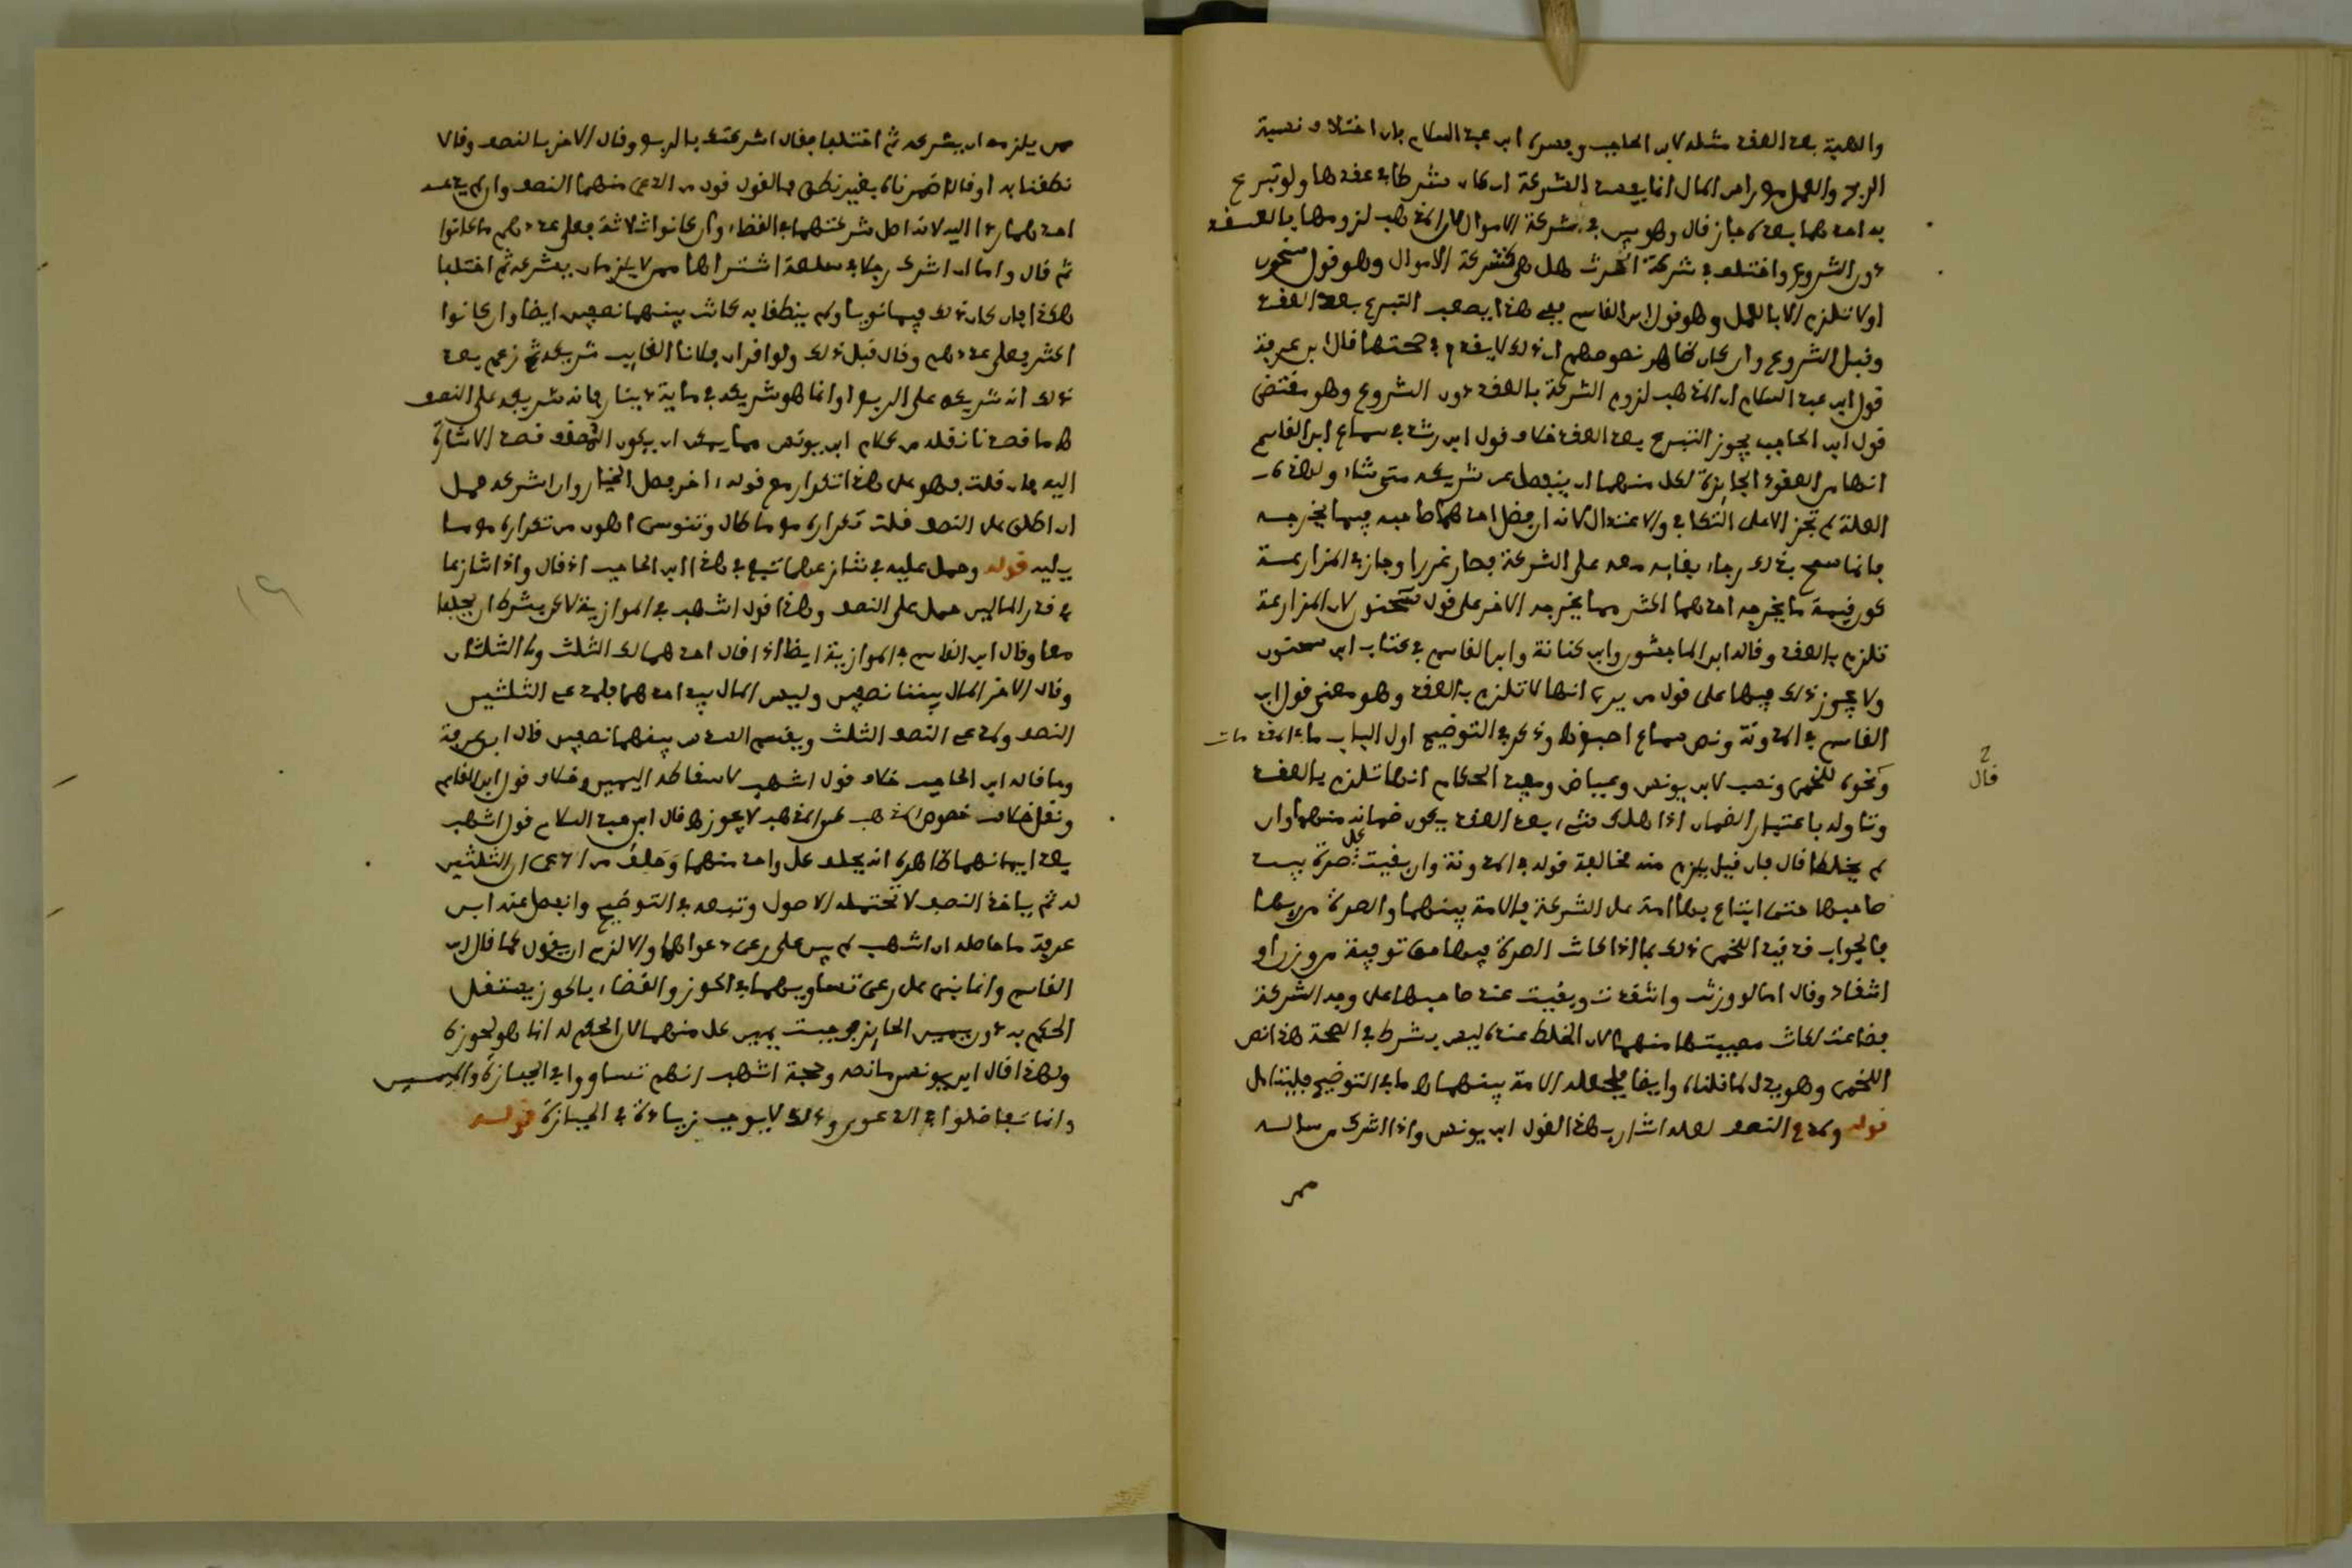 والهبة بعد العقد مثله لابن الحاجب وفسره ابن عبد السلام بأن اختلاف نسبة
الربح والعمل مع راس المال انما يفسد الشركة ان كان شرطا في عقدها ولو تبرع
به احدهما بعده جاز قال وهو بين في شركة الاموال لان المذهب لزومها بالعقد
دون الشروع واختلف في شركة الحرث هل هي كشركة الاموال وهو قول سحنون
او لا تلزم الا بالعمل وهو قول ابن القاسم فعلى هذا يصعب التبرع بعد العقد
وقبل الشروع وان كان ظاهر نصوصهم ان ذلك لا يقدح في صحتها قال ابن عرفة
قول ابن عبد السلام ان المذهب لزوم الشركة بالعقد دون الشروع وهو مقتضى
قول ابن الحاجب يجوز التبرع بعد العقد خلاف قول ابن رشد في سماع ابن القاسم
انها من العقود الجايزة لكل منهما ان ينفصل عن شريكه متى شاء ولهذه
العلة لم تجز الا على التكافي والاعتدال لانه ان فضل احدهما صاحبه فيما يخرجه
فانما سمح بذلك رجاء بقايه معه على الشركة فصار غررا وجاز في المزارعة
كون قيمة ما يخرجه احدهما اكثر مما يخرجه الاخر على قول سحنون لان المزارعة
تلزم بالعقد وقاله ابن الماجشون وابن كنانة وابن القاسم في كتاب ابن سحنون
ولا يجوز ذلك فيها على قول من يرى انها لا تلزم بالعقد وهو معنى قول ابن
القاسم في المدونة ونص سماع اصبغ وذكر في التوضيح اول الباب ما في المقدمات
ونحوه للخمي ونسب لابن يونس وعياض ومعين الحكام انها تلزم بالعقد
ح
قال
وتناوله باعتبار الضمان اذا هلك شيء بعد العقد يكون ضمانه منهما وان
لم يخلطا قال فان قيل يلزم منه مخالفة قوله في المدونة وان بقيت كل صرة بيد
صاحبها حتى ابتاع بها امة على الشركة فالامة بينهما والصرة من ربها
فالجواب قد قيد اللخمي ذلك بما اذا كانت الصرة فيها حق توفية من وزن او
انتقاد وقال اما لو وزنت وانتقدت وبقيت عند صاحبها على وجه الشركة
فضاعت لكانت مصيبتها منهما لان الخلط عنده ليس بشرط في الصحة هذا نص
اللخمي وهو يدل لما قلناه وايضا فلجعله الامة بينهما اهـ ما في التوضيح فليتامل
قوله ولمدع النصف لعله اشار بهذا لقول ابن يونس واذا اشرك من ساله
ممن
ممن يلزمه ان يشركه ثم اختلفا فقال اشركتك بالربع وقال الاخر بالنصف وقالا
نطقنا به او قالا اضمرناه بغير نطق فالقول قول من ادعى منهما النصف وان لم يدعه
احدهما ردا اليه لانه اصل شركتهما في القضاء وان كانوا ثلاثة فعلى عددهم ما كانوا
ثم قال واما ان اشرك رجلا في سلعة اشتراها ممن لا يلزمه ان يشركه ثم اختلفا
هكذا فان كان ذلك فيما نويا ولم ينطقا به كانت بينهما نصفين ايضا وان كانوا
اكثر فعلى عددهم وقال قبل ذلك ولو اقر ان فلانا الغايب شريكه ثم زعم بعد
ذلك انه شريكه على الربع او انما هو شريكه في ماية دينار فانه شريكه على النصف
اهـ ما قصدنا نقله من كلام ابن يونس مما يمكن ان يكون المصنف قصد الاشارة
اليه فان قلت فهو على هذا تكرار مع قوله ءاخر فصل الخيار وان اشركه حمل
ان اطلق على النصف قلت تكراره مع ما طال وتنوسي اهون من تكراره مع ما
يليه قوله وحمل عليه في تنازعهما تبع في هذا ابن الحاجب اذ قال واذا تنازعا
في قدر المالين حمل على النصف وهذا قول اشهب في الموازية لكن بشرط ان يحلفا
معا وقال ابن القاسم في الموازية ايضا اذا قال احدهما لك الثلث ولي الثلثان
وقال الاخر المال بيننا نصفين وليس المال بيد احدهما فلمدعي الثلثين
النصف ولمدعي النصف الثلث ويقسم السدس بينهما نصفين قال ابن عرفة
وما قاله ابن الحاجب خلاف قول اشهب لاسقاطه اليمين وخلاف قول ابن القاسم
ونقل خلاف نصوص المذهب على المذهب لا يجوز اهـ قال ابن عبد السلام قول اشهب
بعد ايمانهما ظاهره انه يحلف كل واحد منهما وحلف من ادعى ان الثلثين
له ثم ياخذ النصف لا تحتمله الاصول وتبعه في التوضيح وانفصل عنه ابن
عرفة ما حاصله ان اشهب لم يبن على رعي دعواهما والا لزم ان يقول كما قال ابن
القاسم وانما بنى على رعي تساويهما في الحوز والقضاء بالحوز يستقل
الحكم به دون يمين الحايز فوجبت يمين كل منهما لان الحكم له انما هو لحوزه
ولهذا قال ابن يونس ما نصه وحجة اشهب انهم تساووا في الحيازة واليمين
وانما تفاضلوا في الدعوى وذلك لا يوجب زيادة في الحيازة قوله